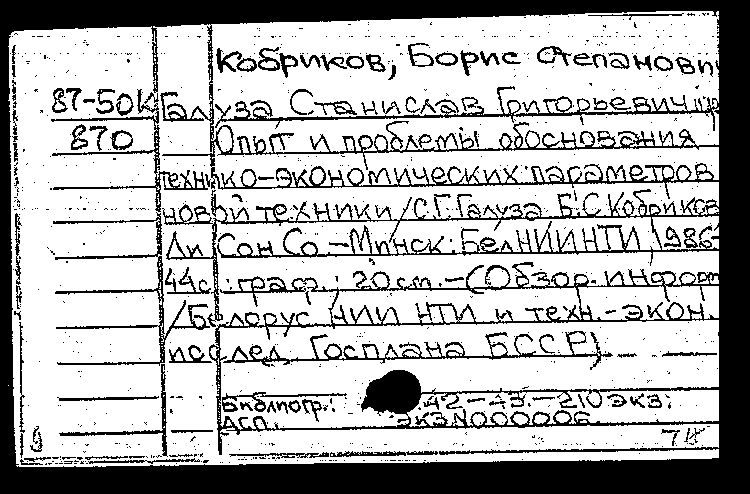 Кобриков, Борис Степанович
87-50К Галуза Станислав Григорьевич
870 Опыт и проблемы обоснования
технико-экономических параметров
новой техники /С.Г.Галуза Б.С.Кобриков
Ли Сон Со.-Минск: БелНИИНТИ, 1986-
44с.:граф.; 20см.-(Обзор. информ
/Белорус НИИ НТИ и техн.-экон.
исслед. Госплана БССР)
Библиогр.: 42-43.-210 экз.
ДСП. экз N000006.